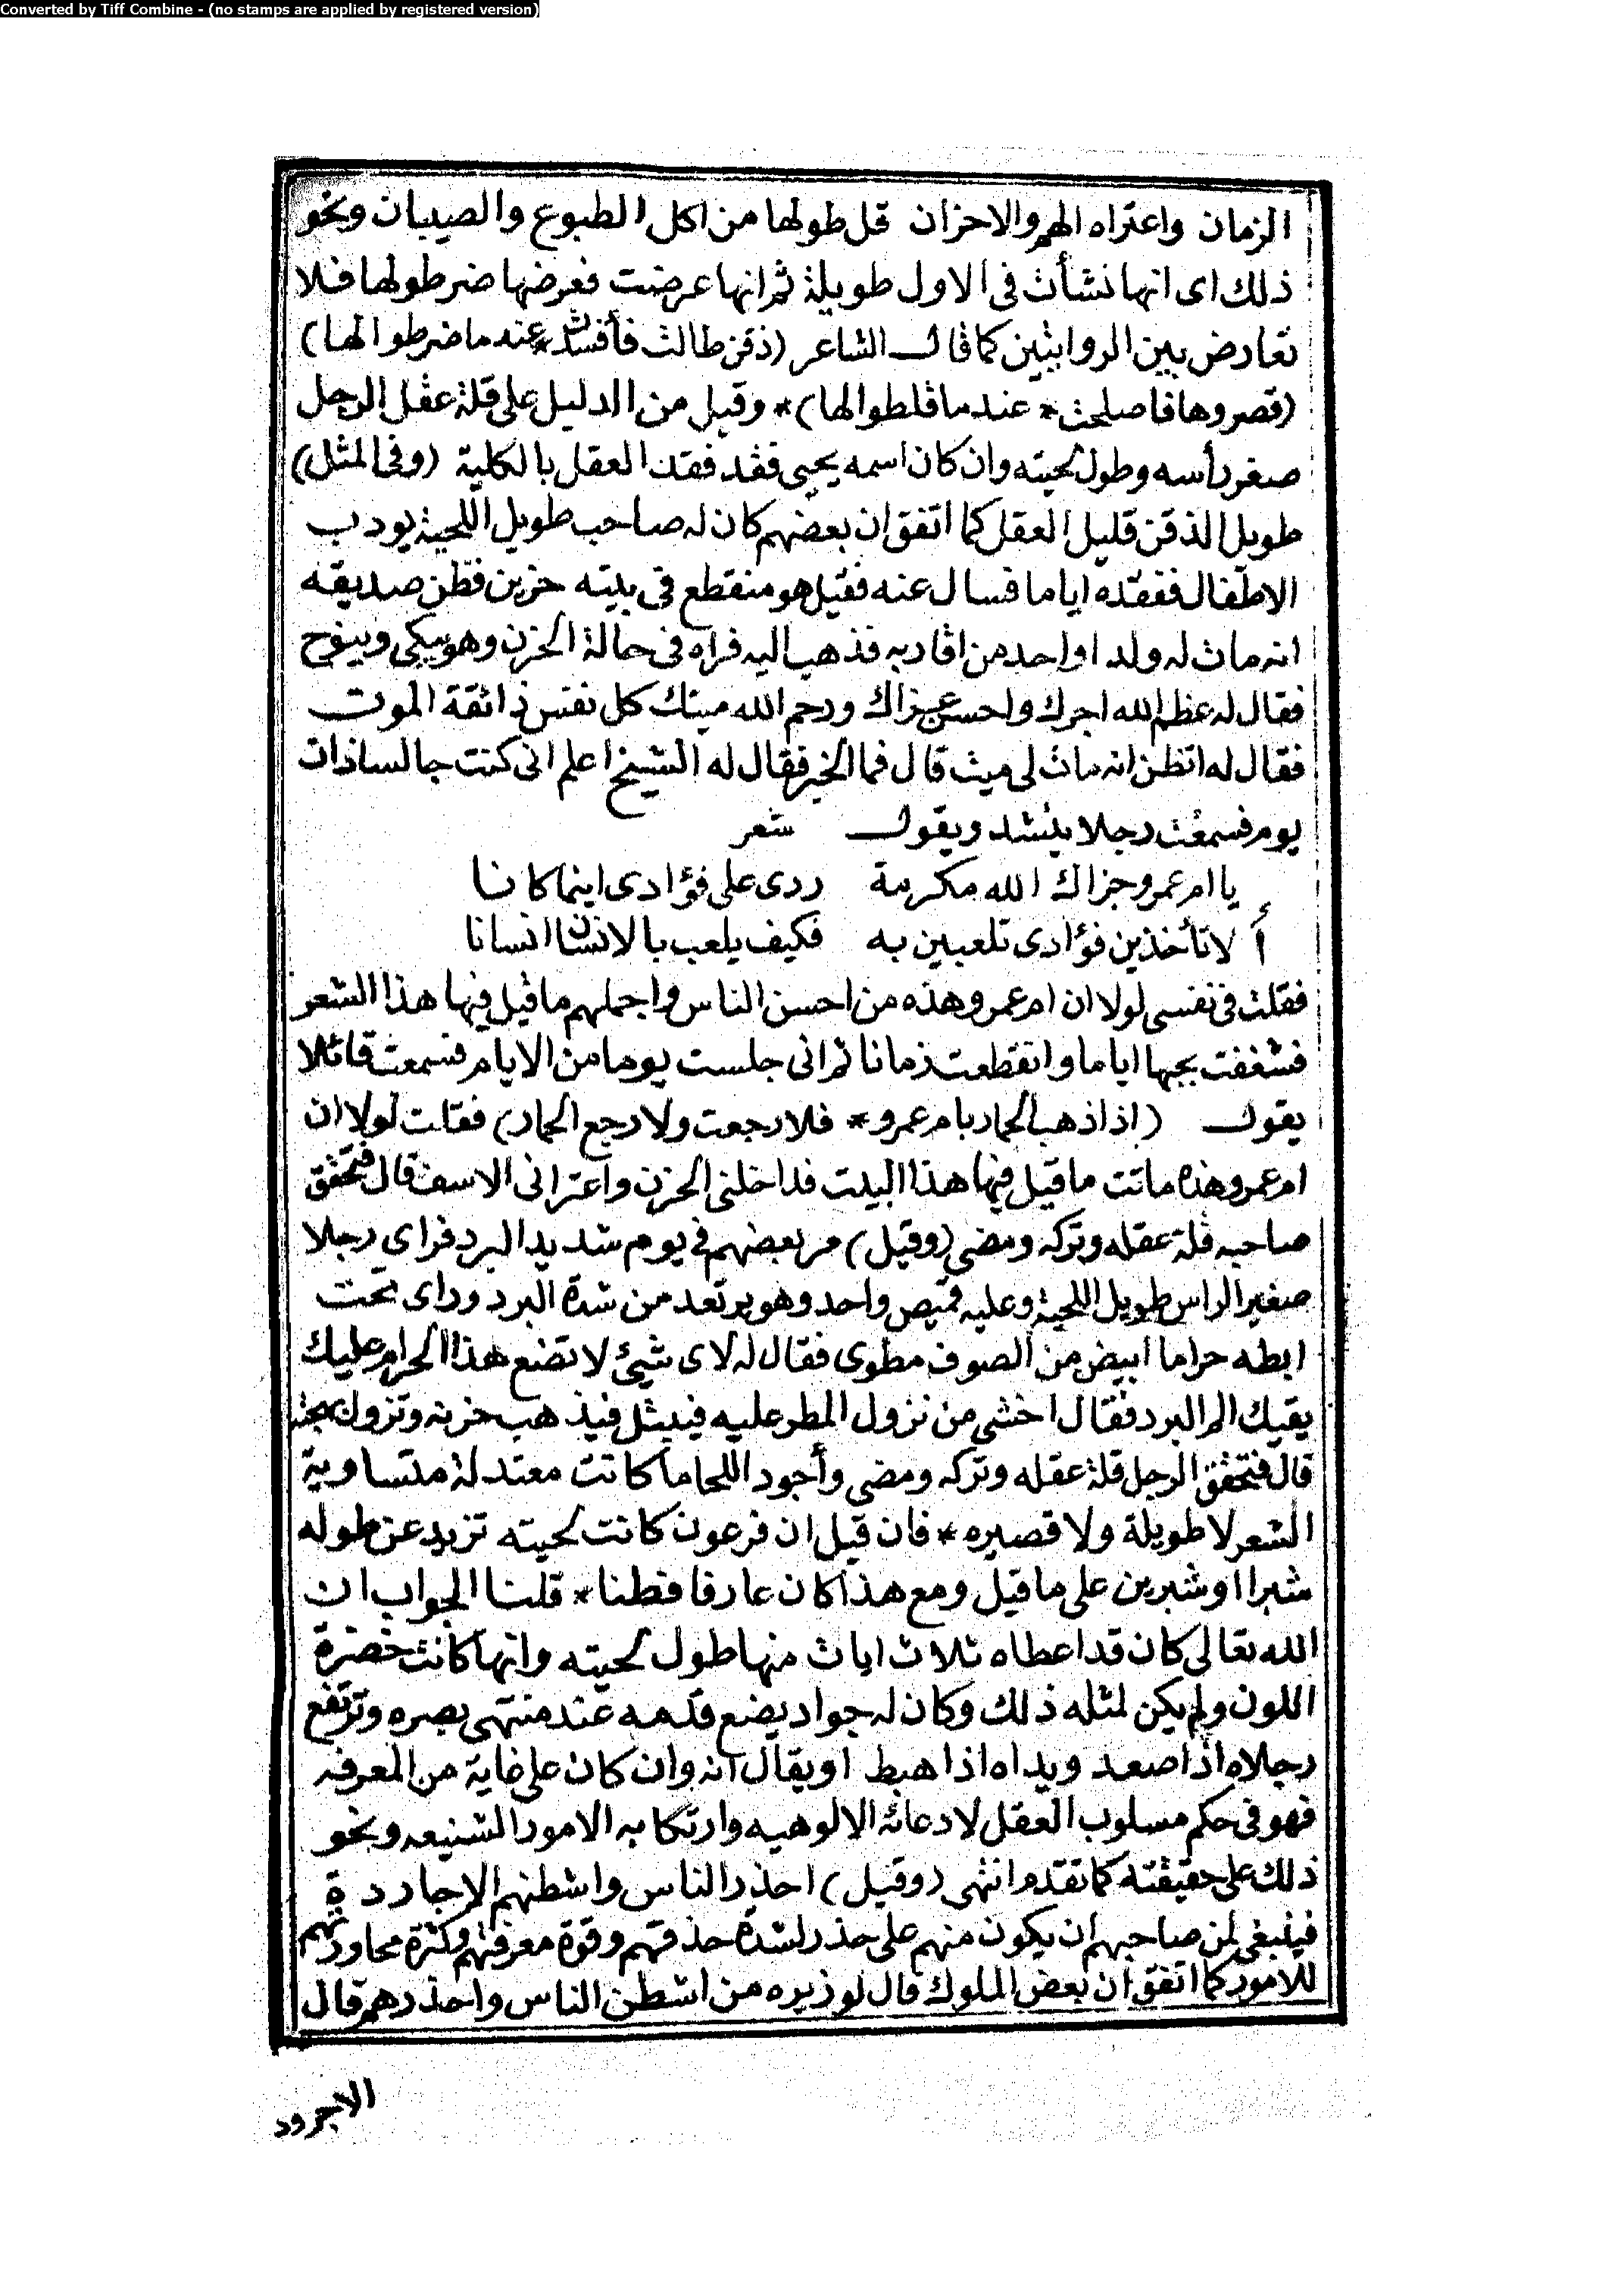 Converted by Tiff Combine - (no stamps are applied by registered version)
الزمان واعتراه الهم والاحزان قل طولها من اكل الطبوع والصيبان ونحو
ذلك اى انها نشأت فى الاول طويلة ثم انها عرضت فعرضها ضر طولها فلا
تعارض بين الروايتين كما قال الشاعر (ذقن طالت فأفسدت * عندما ضرطوا لها)
(قصروها فاصلحت * عندما قلطوا لها) * وقيل من الدليل على قلة عقل الرجل
صغر رأسه وطول لحيته وان كان اسمه يحيى فقد فقد العقل بالكلية (وفى المثل)
طويل الذقن قليل العقل كما اتفق ان بعضهم كان له صاحب طويل اللحية يودب
الاطفال ففقده اياما فسال عنه فقيل هو منقطع فى بيته حزين فظن صديقه
انه مات له ولد او احد من اقاربه فذهب اليه فراه فى حالة الحزن وهو يبكى وينوح
فقال له عظم الله اجرك واحسن عزاك ورحم الله ميتك كل نفس ذائقة الموت
فقال له اتظن انه مات لى ميت قال فما الخبر فقال له الشيخ اعلم انى كنت جالسا ذات
يوم فسمعت رجلا ينشد ويقول شعر
يا ام عمرو جزاك الله مكرمة ردى على فؤادى اينما كانا
أ لا تأخذين فؤادى تلعبين به فكيف يلعب بالانسان انسانا
فقلت فى نفسى لولا ان ام عمرو هذه من احسن الناس واجملهم ما قيل فيها هذا الشعر
فشغفت بحبها اياما وانقطعت زمانا ثم انى جلست يوما من الايام فسمعت قائلا
يقول (اذا ذهب الحمار بام عمرو * فلا رجعت ولا رجع الحمار) فقلت لولا ان
ام عمرو هذه ماتت ما قيل فيها هذا البيت فداخلنى الحزن واعترانى الاسف قال فتحقق
صاحبه قلة عقله وتركه ومضى (وقيل) مر بعضهم فى يوم شديد البرد فراى رجلا
صغير الراس طويل اللحية وعليه قميص واحد وهو يرتعد من شدة البرد وراى تحت
ابطه حراما ابيض من الصوف مطوى فقال له لاى شيئ لا تضع هذا الحرام عليك
يقيك الم البرد فقال اخشى من نزول المطر عليه فيبتل فيذهب حزنه وتزول
قال فتحقق الرجل قلة عقله وتركه ومضى وأجود اللحا ما كانت معتدلة متساوية
الشعر لا طويلة ولا قصيره * فان قيل ان فرعون كانت لحيته تزيد عن طوله
شبرا او شبرين على ما قيل ومع هذا كان عارفا فطنا * قلنا الجواب ان
الله تعالى كان قد اعطاه ثلاث ايات منها طول لحيته وانها كانت خضرة
اللون ولم يكن لمثله ذلك وكان له جواد يضع قدمه عند منتهى بصره وترتفع
رجلاه اذا صعد ويداه اذا هبط او يقال انه وان كان على غاية من المعرفه
فهو فى حكم مسلوب العقل لادعائه الالوهيه وارتكابه الامور الشنيعه ونحو
ذلك على حقيقته كما تقدم انتهى (وقيل) احذر الناس واشطنهم الاجاردة
فينبغى لمن صاحبهم ان يكون منهم على حذر لشدة حذقهم وقوة معرفتهم وكثرة محاورتهم
للامور كما اتفق ان بعض الملوك قال لوزيره من اشطن الناس واحذرهم قال
الاجرود